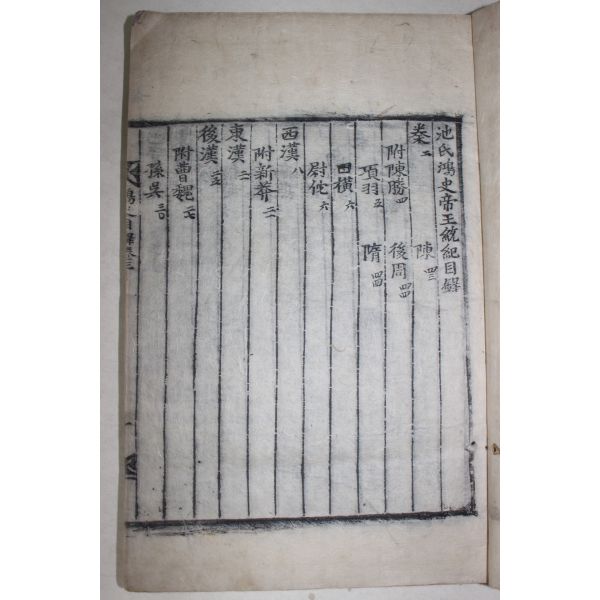 池氏鴻史帝王統紀目錄
秦 陳 四三
附陳勝 四 後周 四四
項羽 五 隋 四四
田橫 六
尉佗 六
西漢 八
附新莽 二一
東漢
後漢 二五
附曹魏 二七
孫吳 三〇
鴻史目錄卷三